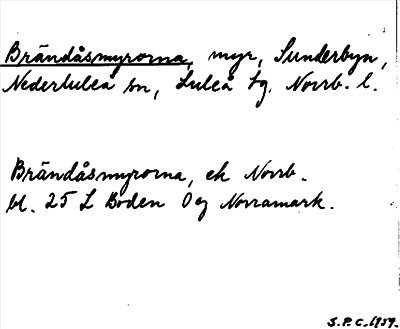 Brändåsmyrorna, myr, Sunderbyn,
Nederluleå sn, Luleå tg. Norrb. l.
Brändåsmyrorna, ek Norrb.
bl. 25 L Boden Og Norramark.
S.P.C. 1959.